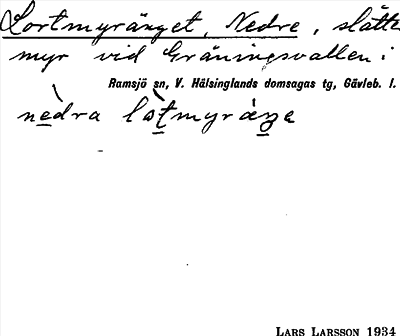 Lortmyränget, Nedre, slåtte
myr vid Gräningsvallen i
Ramsjö sn, V. Hälsinglands domsagas tg, Gävleb. l.
nedra lòtmyräŋe
LARS LARSSON 1934